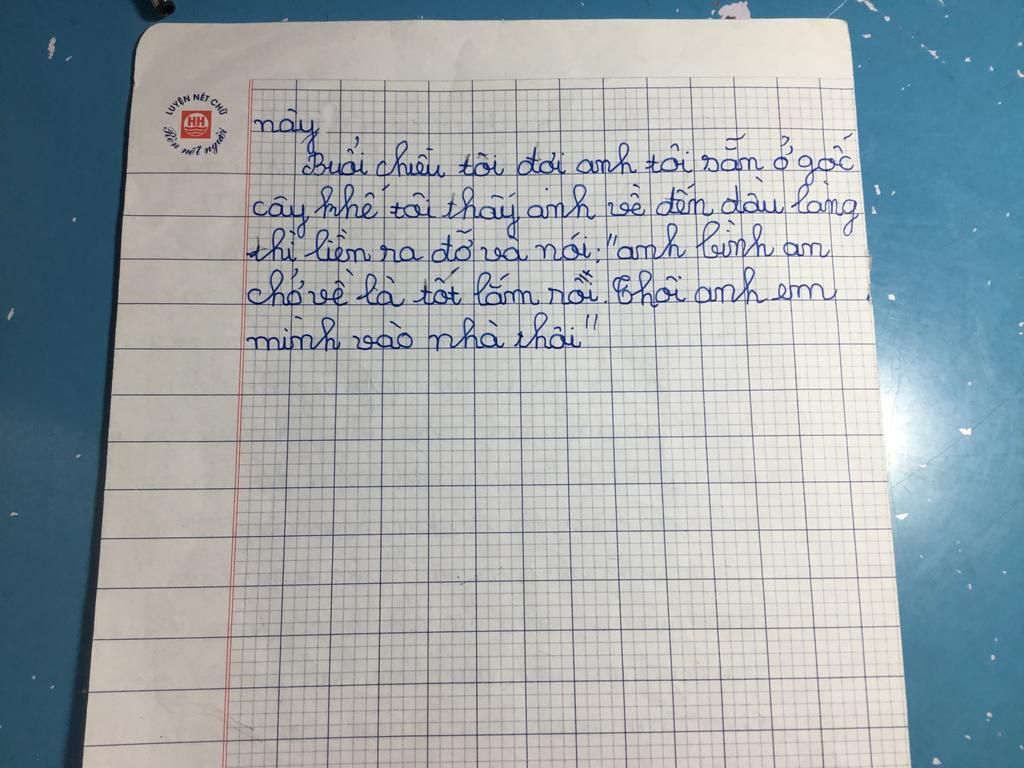 LUYỆN NÉT CHỮ
HH
Rèn nết người
này
Buổi chiều tôi đơi anh tôi sẵn ở gốc
cây khế tôi thấy anh về đến đầu làng
thì liền ra đỡ và nói: "anh bình an
chở về là tốt lắm rồi. Thôi anh em
mình vào nhà thôi"